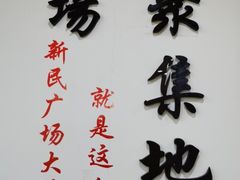 聚集地
场
就是这
新民广场大